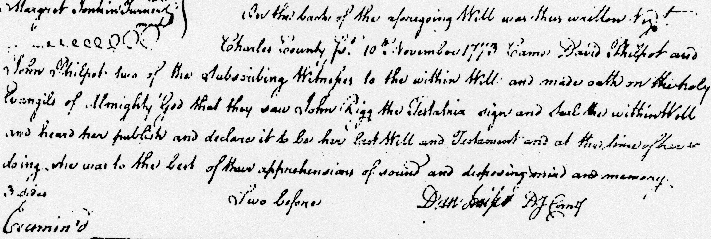 Margret Jenkin
mark
On the back of the aforegoing Will was thus written Vizt
Charles County Sst 10th November 1773 Came David Philpot and
John Philpot two of the Subscribing Witnesses to the within Will and made oath on the holy
Evangils of Almighty God that they saw John Rigg the Testatrix sign and seal the within Will
and heard her publish and declare it to be her Last Will and Testament and at the time of her so
doing she was to the best of their apprehensions of sound and disposing mind and memory.
3 sides
Examin'd